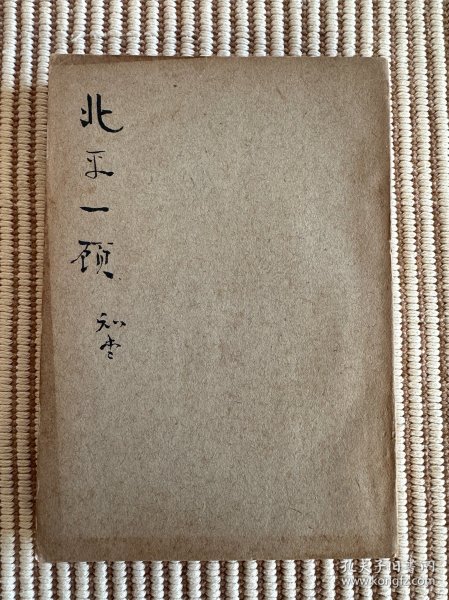 北平一顾
知堂
孔夫子旧书网
www.kongfz.com